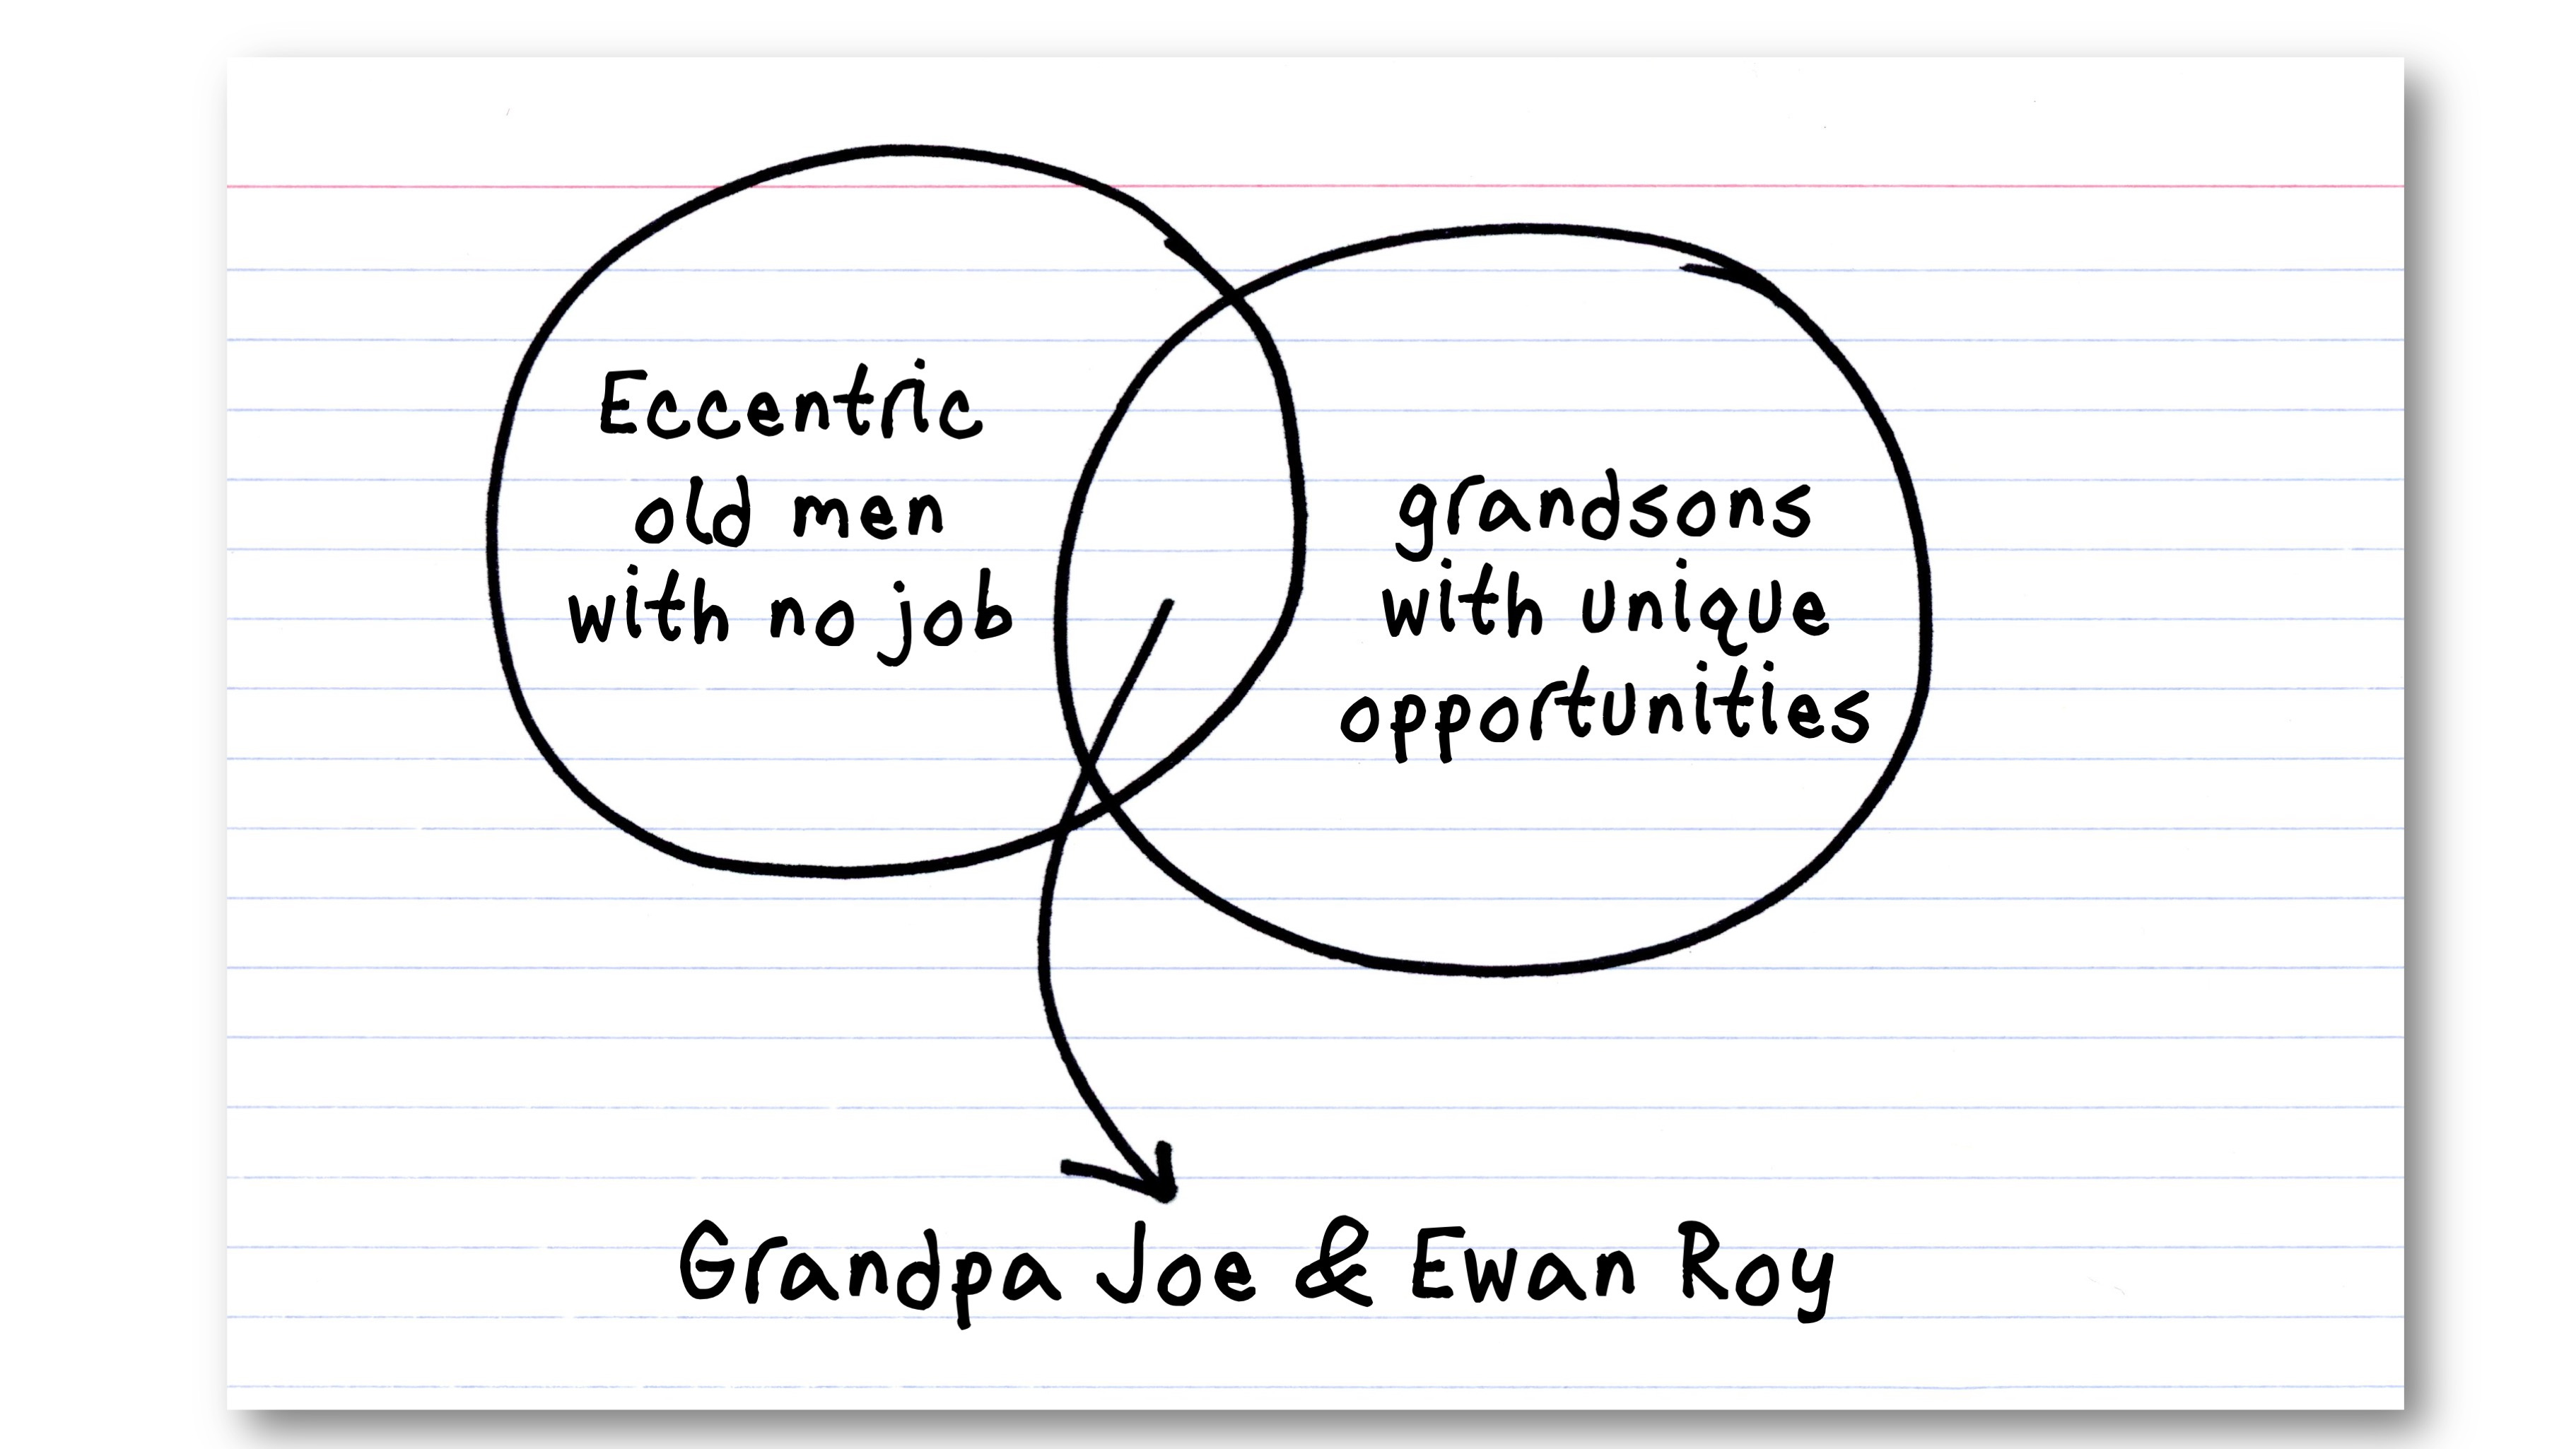 Eccentric
old men
with no job
grandsons
with unique
opportunities
Grandpa Joe & Ewan Roy